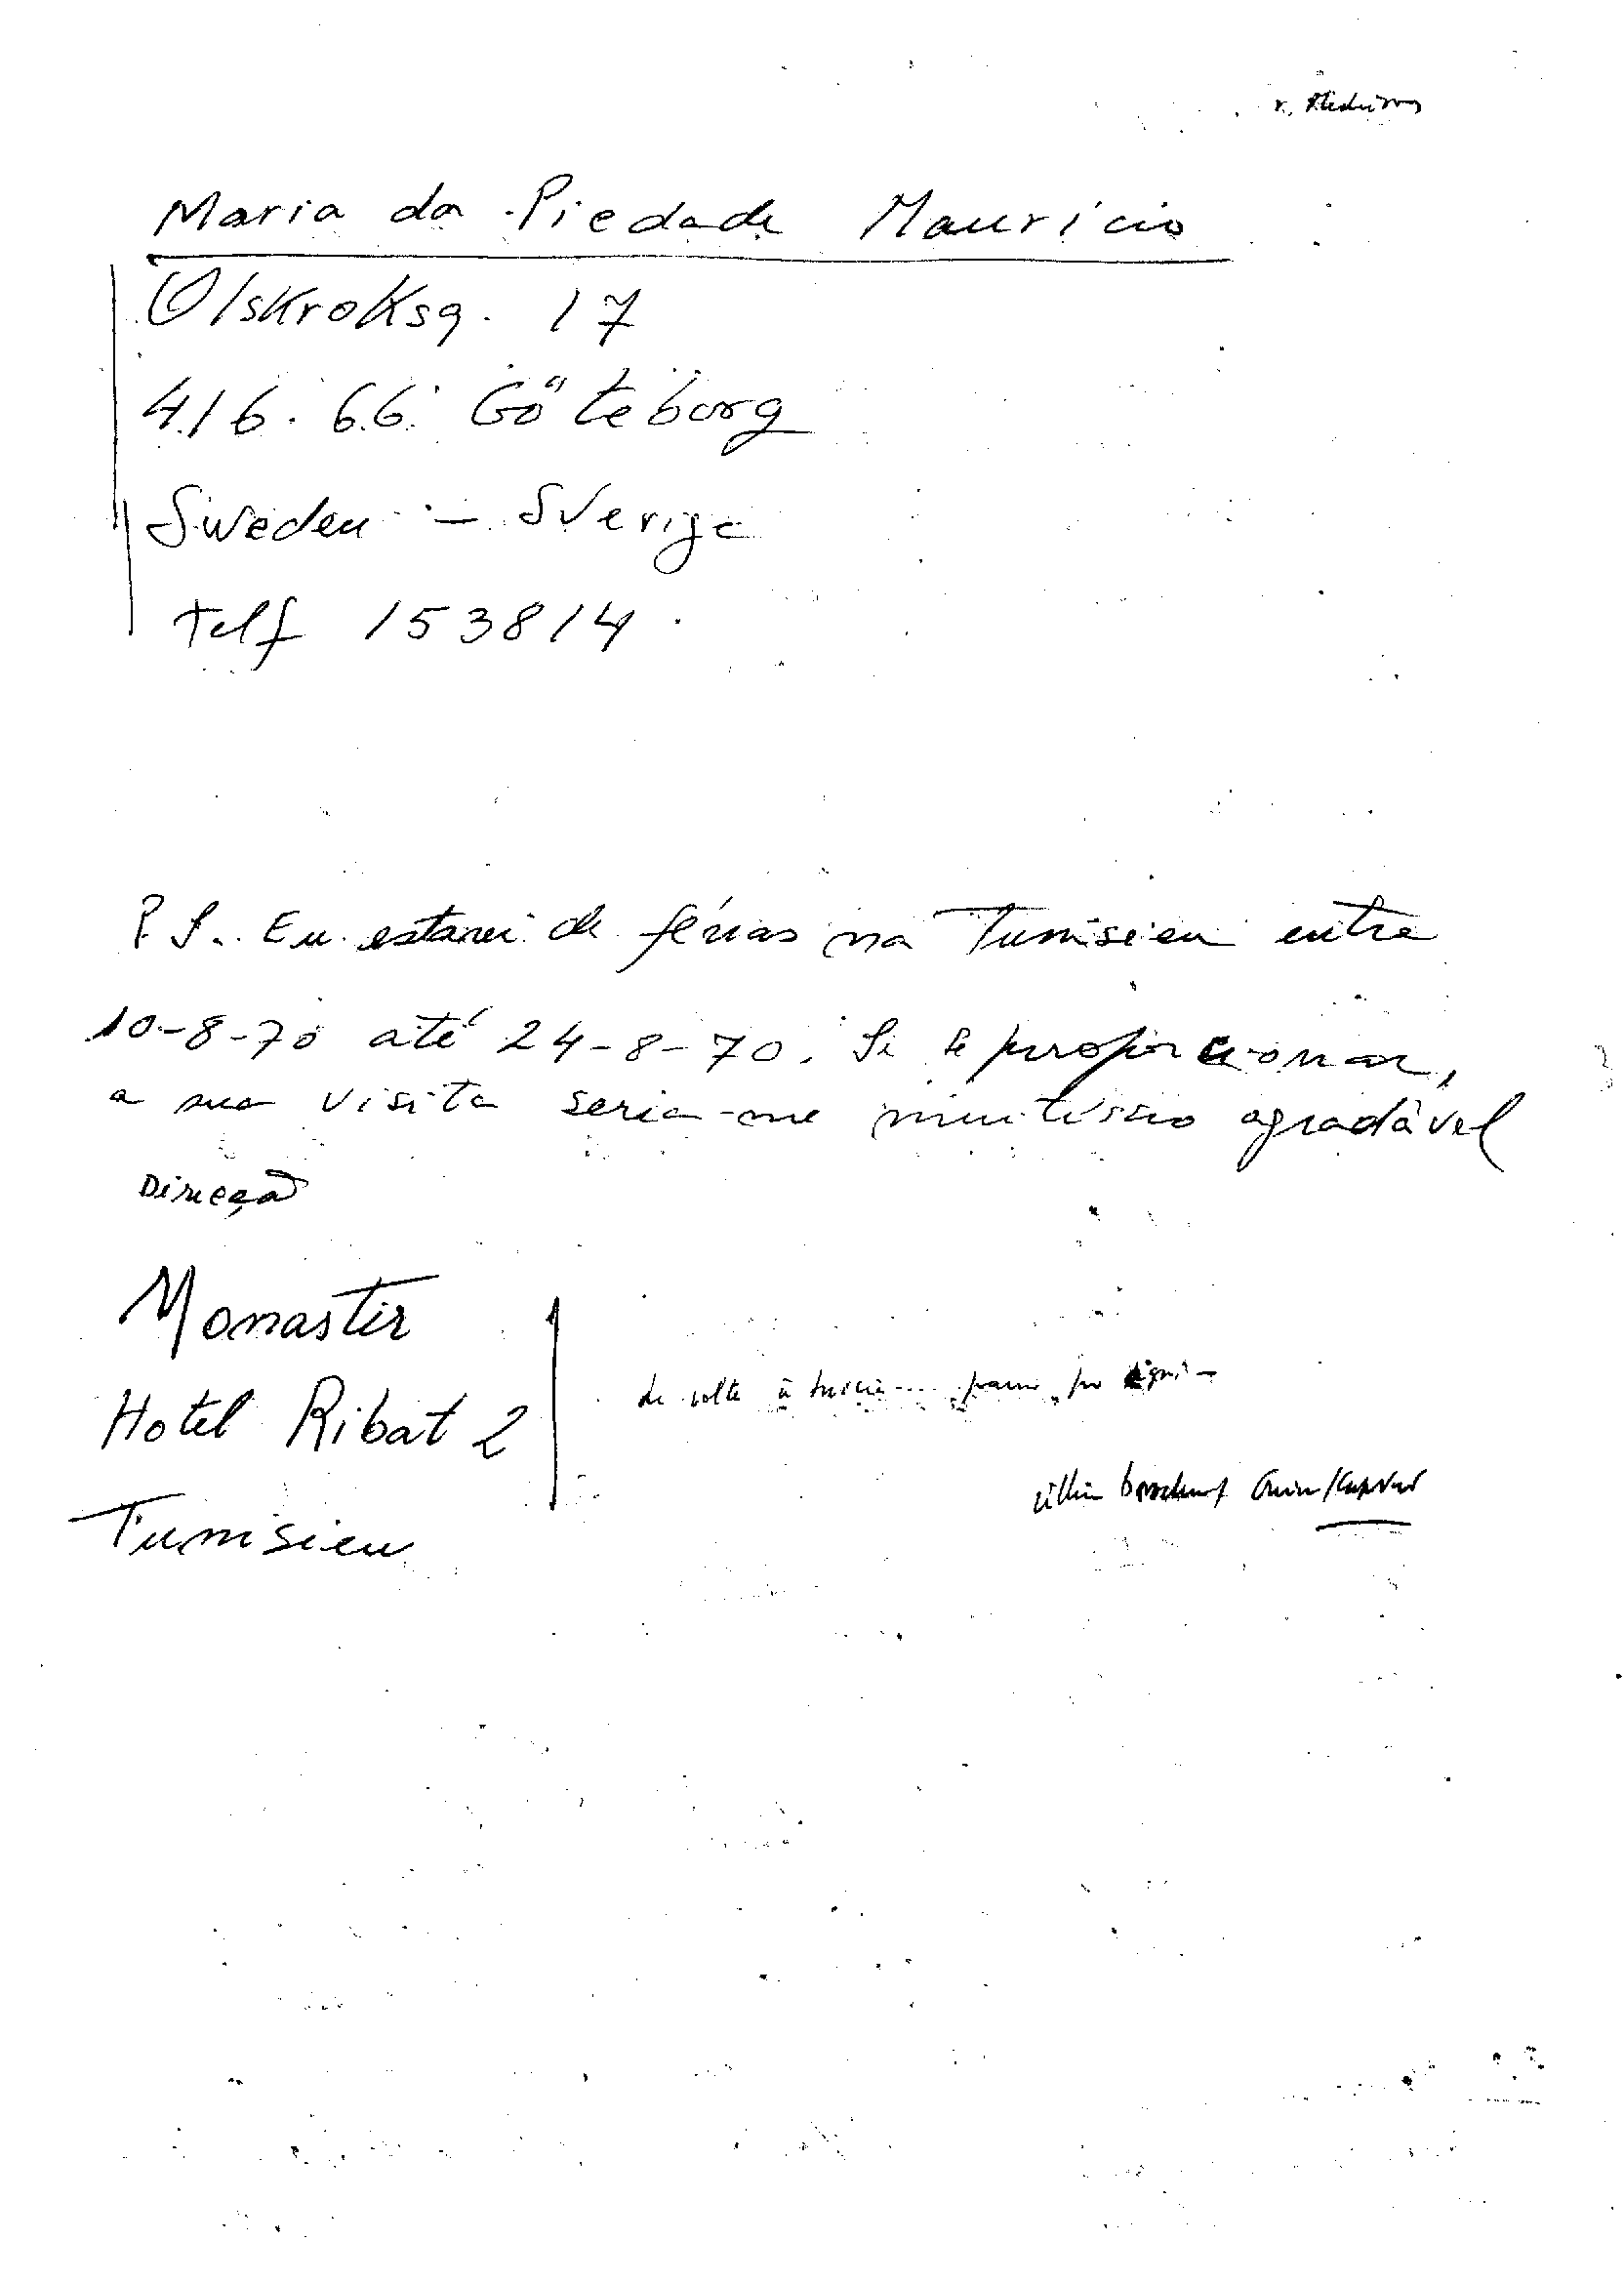 Maria da Piedade Mauricio
Olskroksg. 17
416.66. Göteborg
Sweden - Sverige
Telf 153814.
P.S. Eu estarei de férias na Tunisien entre
10-8-70 até 24-8-70. Si se proporcionar,
a sua visita seria-me muitissio agradável
Direção
Monastir
Hotel Ribat 2
Tunisien
de volta à